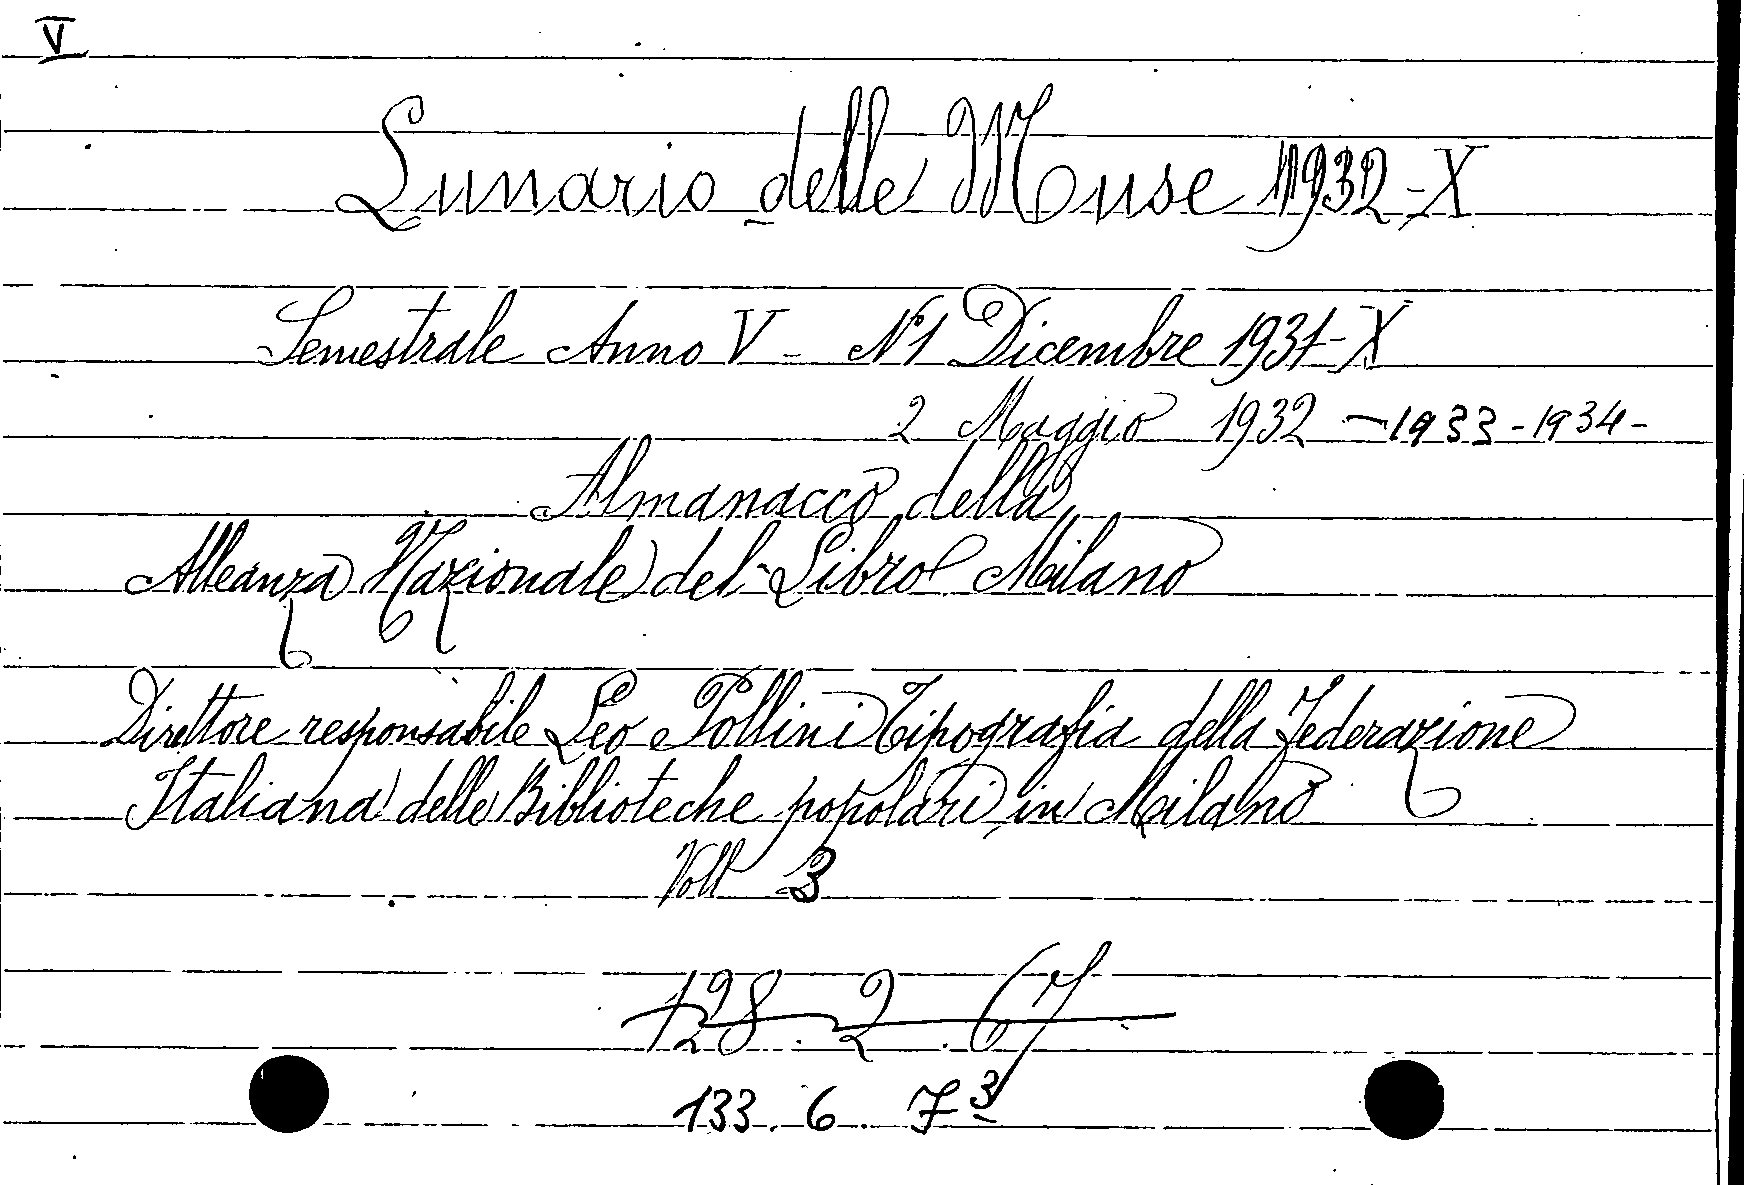 V
Lunario delle Muse 1932-X
Semestrale Anno V - N°1 Dicembre 1931-X
2 Maggio 1932 - 1933 - 1934 -
Almanacco della
Alleanza Nazionale del Libro Milano
Direttore responsabile Leo Pollini Tipografia della Federazione
Italiana delle Biblioteche popolari in Milano
Voll 3
128. 2. 67
133. 6. 7 3